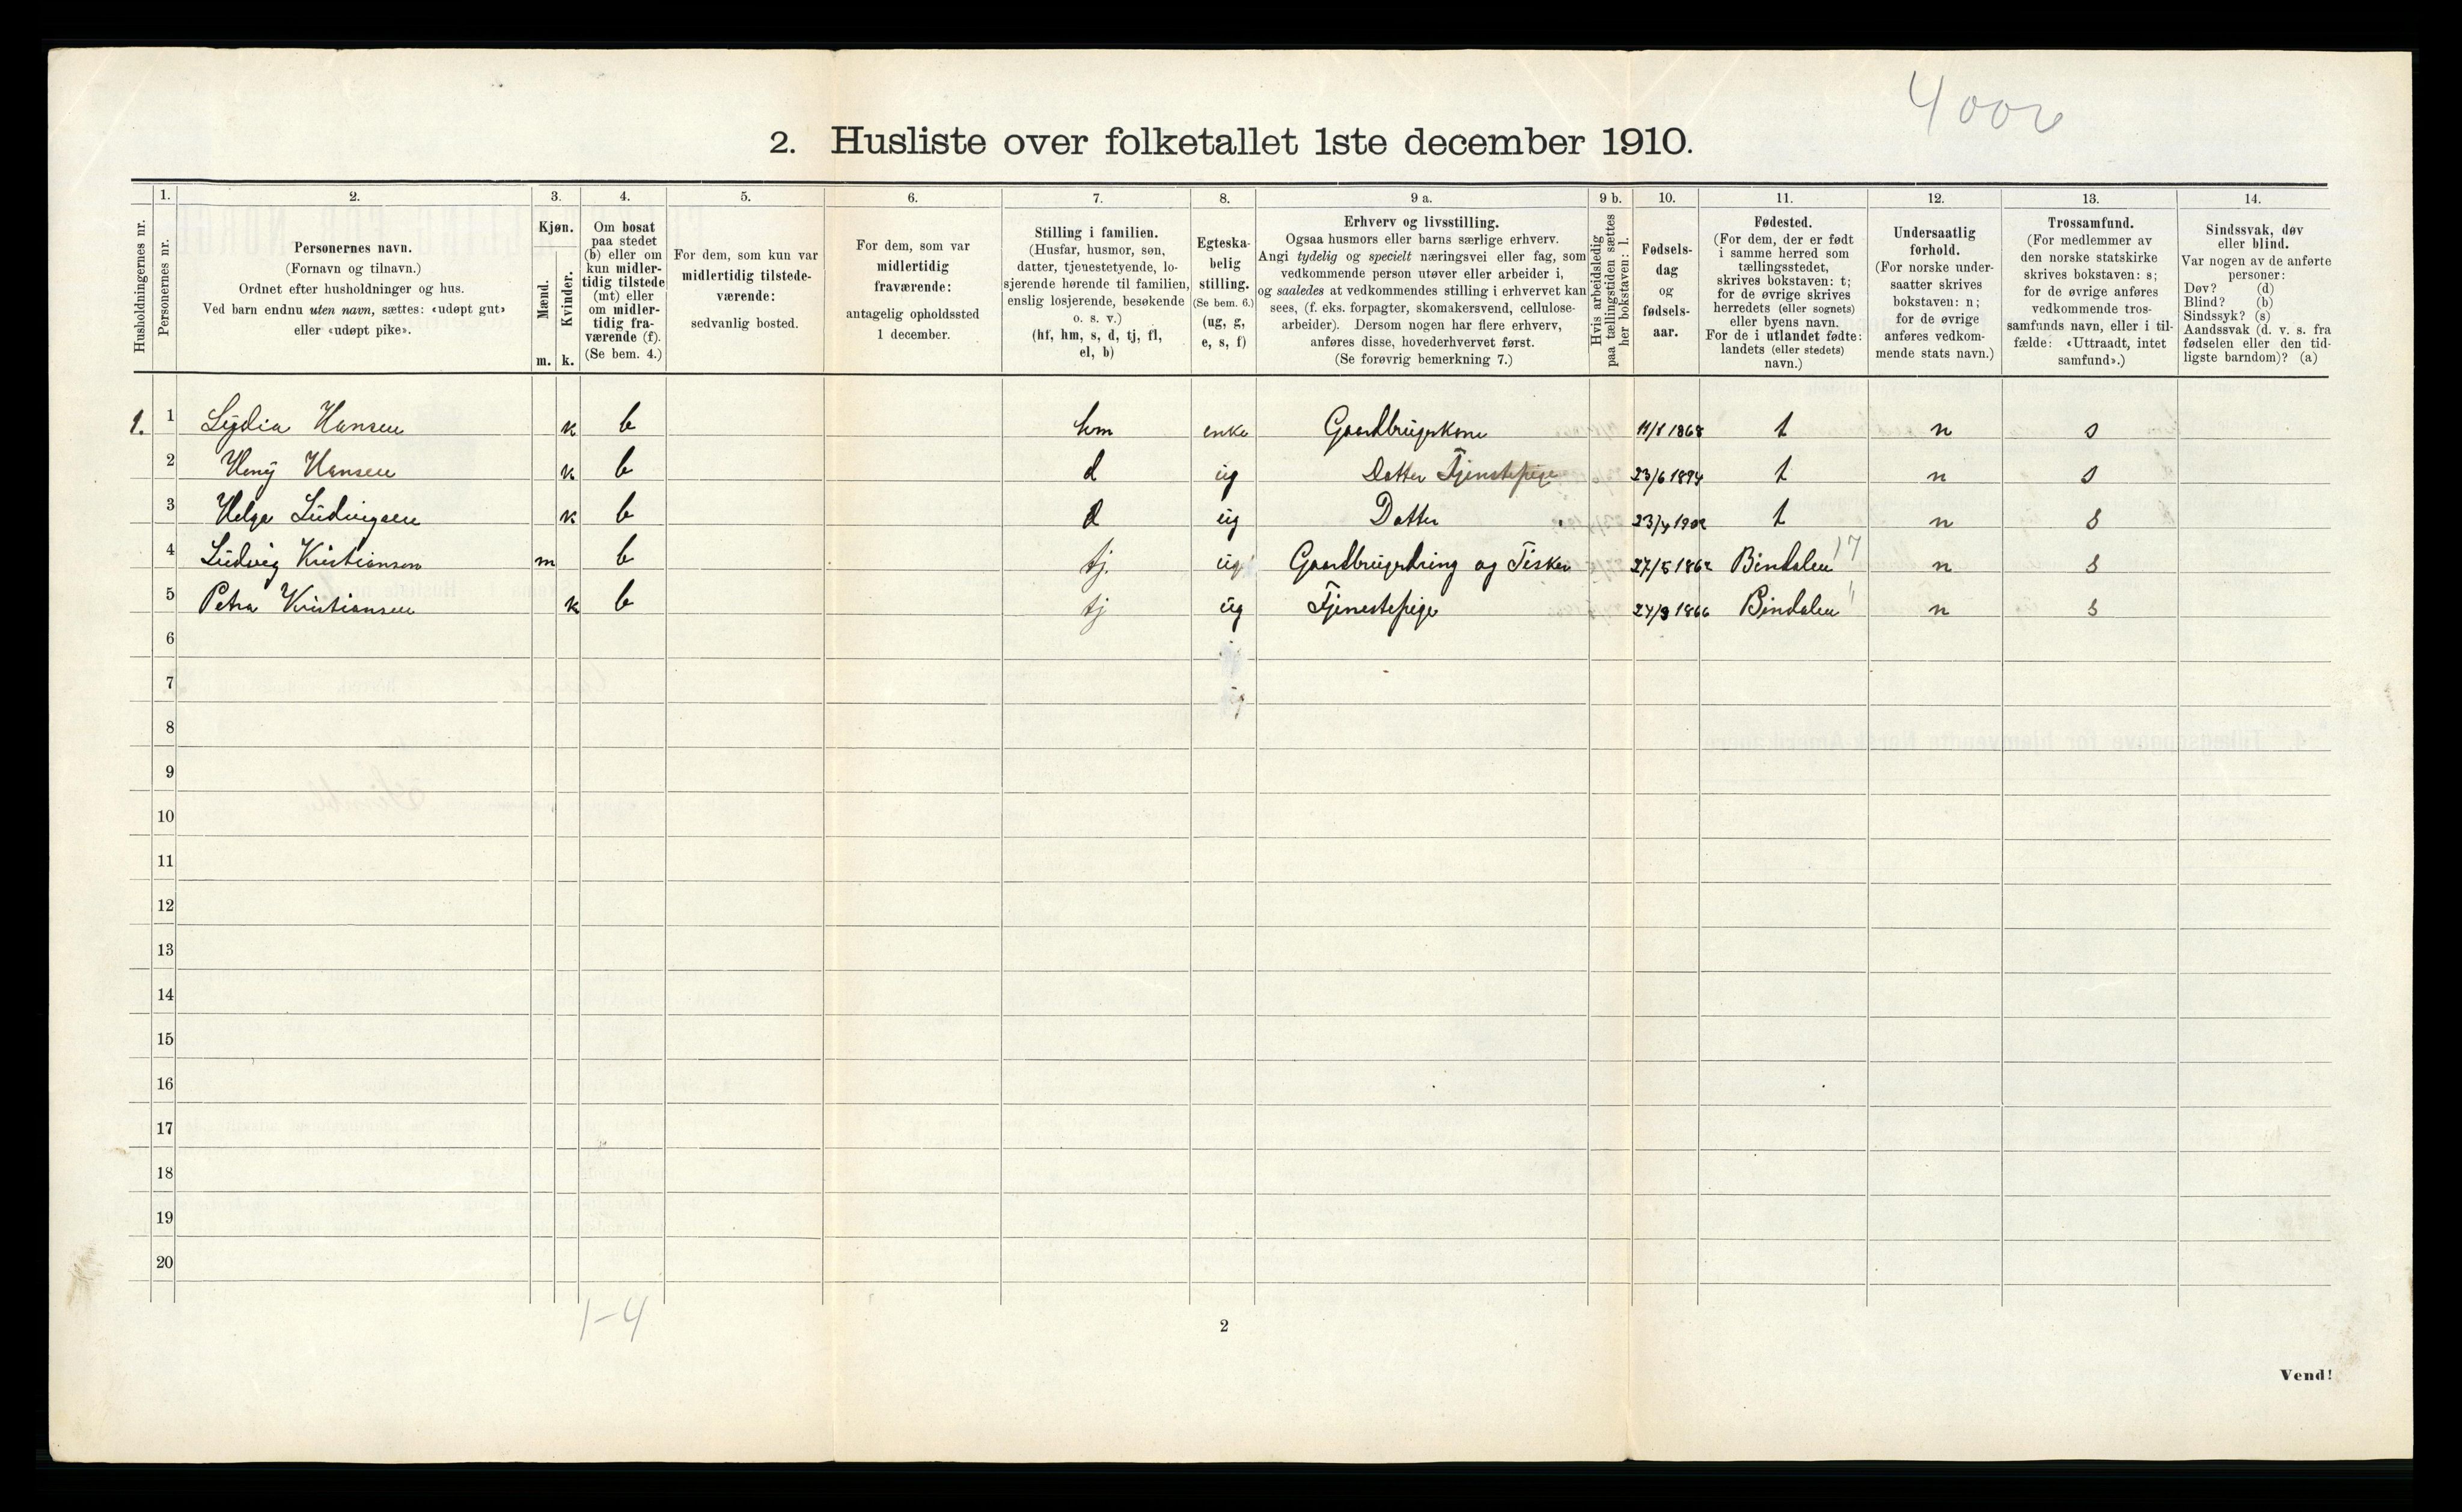 4000
2. Husliste over folketallet 1ste december 1910.
Husholdningernes nr.
1.
Personernes nr.
2.
Personernes navn.
(Fornavn og tilnavn.)
Ordnet efter husholdninger og hus.
Ved barn endnu uten navn, sættes: «udøpt gut»
eller «udøpt pike».
3.
Kjøn.
Mænd.
m.
Kvinder.
k.
4.
Om bosat
paa stedet
(b) eller om
kun midler-
tidig tilstede
(mt) eller
om midler-
tidig fra-
værende (f).
(Se bem. 4.)
5.
For dem, som kun var
midlertidig tilstede-
værende:
sedvanlig bosted.
6.
For dem, som var
midlertidig
fraværende:
antagelig opholdssted
1 december.
7.
Stilling i familien.
(Husfar, husmor, søn,
datter, tjenestetyende, lo-
sjerende hørende til familien,
enslig losjerende, besøkende
o. s. v.)
(hf, hm, s, d, tj, fl,
el, b)
8.
Egteska-
belig
stilling.
(Se bem. 6.)
(ug, g,
e, s, f)
9 a.
Erhverv og livsstilling.
Ogsaa husmors eller barns særlige erhverv.
Angi tydelig og specielt næringsvei eller fag, som
vedkommende person utøver eller arbeider i,
og saaledes at vedkommendes stilling i erhvervet kan
sees, (f. eks. forpagter, skomakersvend, cellulose-
arbeider). Dersom nogen har flere erhverv,
anføres disse, hovederhvervet først.
(Se forøvrig bemerkning 7.)
9 b.
Hvis arbeidsledig
paa tællingstiden sættes
her bokstaven: l.
10.
Fødsels-
dag
og
fødsels-
aar.
11.
Fødested.
(For dem, der er født
i samme herred som
tællingsstedet,
skrives bokstaven: t;
for de øvrige skrives
herredets (eller sognets)
eller byens navn.
For de i utlandet fødte:
landets (eller stedets)
navn.)
12.
Undersaatlig
forhold.
(For norske under-
saatter skrives
bokstaven: n;
for de øvrige
anføres vedkom-
mende stats navn.)
13.
Trossamfund.
(For medlemmer av
den norske statskirke
skrives bokstaven: s;
for de øvrige anføres
vedkommende tros-
samfunds navn, eller i til-
fælde: «Uttraadt, intet
samfund».)
14.
Sindssvak, døv
eller blind.
Var nogen av de anførte
personer:
Døv? (d)
Blind? (b)
Sindssyk? (s)
Aandssvak (d. v. s. fra
fødselen eller den tid-
ligste barndom)? (a)
1. 1 Lydia Hansen k b hm enke Gaardbrugerkone 1868 t n s
2 Heny Hansen k b d ug Datter Tjenestepige 23/6 1894 t n s
3 Helga Ludvigsen k b d ug Datter t n s
4 Ludvig Kristiansen m b tj. ug Gaardbrugerdreng og Fisker 27/5 1862 Bindalen 17 n s
5 Petra Kristiansen k b tj ug Tjenestepige 1866 Bindalen " n s
6
7 ug
8
9
10
11
12
13
14
15
16
17
18
19
20
1-4
2
Vend!